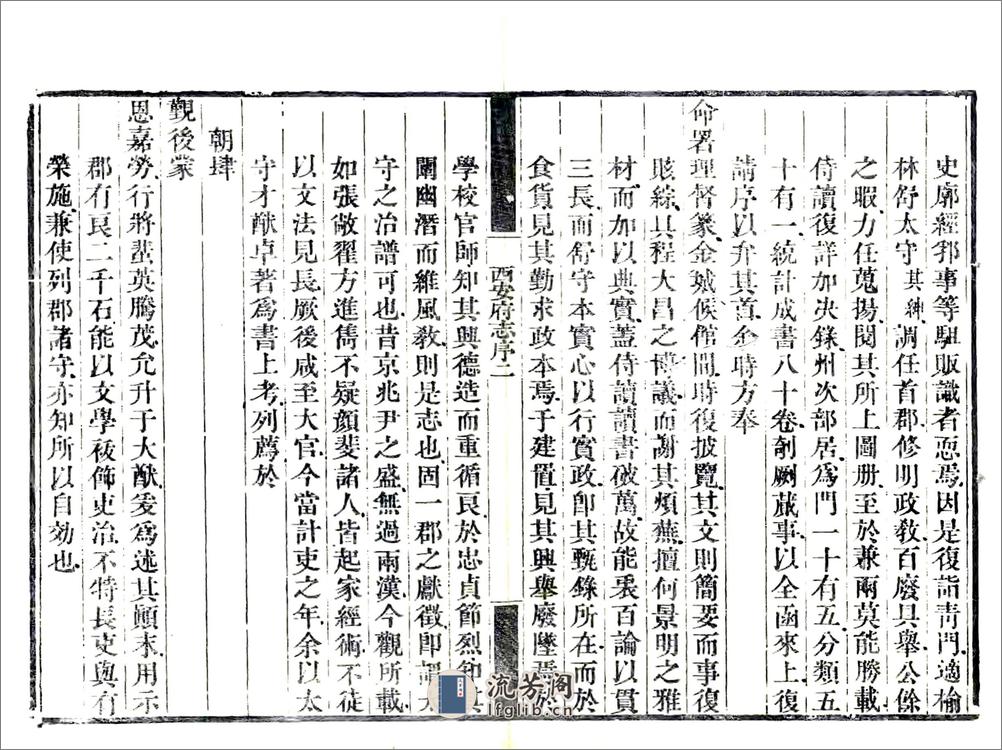 史廓經邦事等駔販識者恧焉因是復詣青門適榆
林舒太守其紳調任首郡修明政教百廢具舉公餘
之暇力任蒐揚閱其所上圖册至於兼兩莫能勝載
侍讀復詳加决錄州次部居爲門一十有五分類五
十有一統計成書八十卷剞劂蕆事以全函來上復
請序以弁其首余時方奉
命署理督篆金城候館間時復披覽其文則簡要而事復
賅綜具程大昌之博議而謝其煩蕪擅何景明之雅
材而加以典實蓋侍讀讀書破萬故能裒百論以貫
三長而舒守本實心以行實政卽其甄錄所在而於
食貨見其勤求政本焉于建置見其興舉廢墜焉於
西安府志序二
學校官師知其興德造而重循良於忠貞節烈知其
闡幽潛而維風敎則是志也固一郡之獻徵卽謂太
守之治譜可也昔京兆尹之盛無過兩漢今觀所載
如張敞翟方進雋不疑顏斐諸人皆起家經術不徒
以文法見長厥後咸至大官今當計吏之年余以太
守才猷卓著爲書上考列薦於
朝肆
覲後蒙
恩嘉勞行將蜚英騰茂允升于大猷爰爲述其顛末用示
郡有良二千石能以文學袚飾吏治不特長吏與有
榮施兼使列郡諸守亦知所以自効也
流芳阁
lfglib.cn